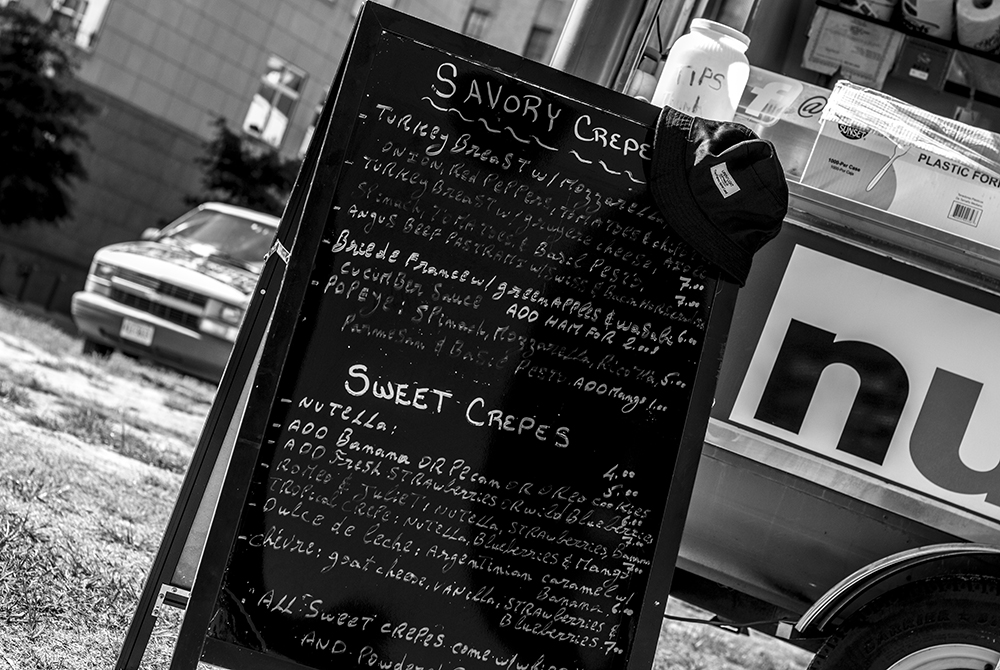 SAVORY CREPE
- TURKEY BREAST w/ MOZZARELLA
ONION, RED PEPPERS, TOMATOES &
- TURKEY BREAST w/ gruyere cheese,
SPINACH, TOMATOES & BASIL PESTO 7.00
- ANGUS BEEF PASTRAMI w/ SWISS & 7.00
- Brie de France w/ green APPLES & wasabi 6.00
CUCUMBER SAUCE ADD HAM FOR 2.00
- POPEYE: SPINACH, MOZZARELLA, RICOTTA, 5.00
PARMESAN & BASIL ADD Mango 1.00
SWEET CREPES
- NUTELLA: 4.00
- ADD Banana OR Pecan OR OREO COOKIES 5.00
- ADD Fresh STRAWberries OR wild Blueberries 6.00
- ROMEO & JULIET: NUTELLA, STRAWberries, Banana 7.00
- TROPICAL CREPE: NUTELLA, Blueberries & Mango 7.00
- Dulce de leche: Argentinian caramel w/
Banana 6.00
- Chevre: goat cheese, vanilla, STRAWberries &
Blueberries - 7.00
"ALL" Sweet crepes come w/
AND Powdered
TIPS
@
SUNSET
1000 Per Case
PLASTIC FOR
nu